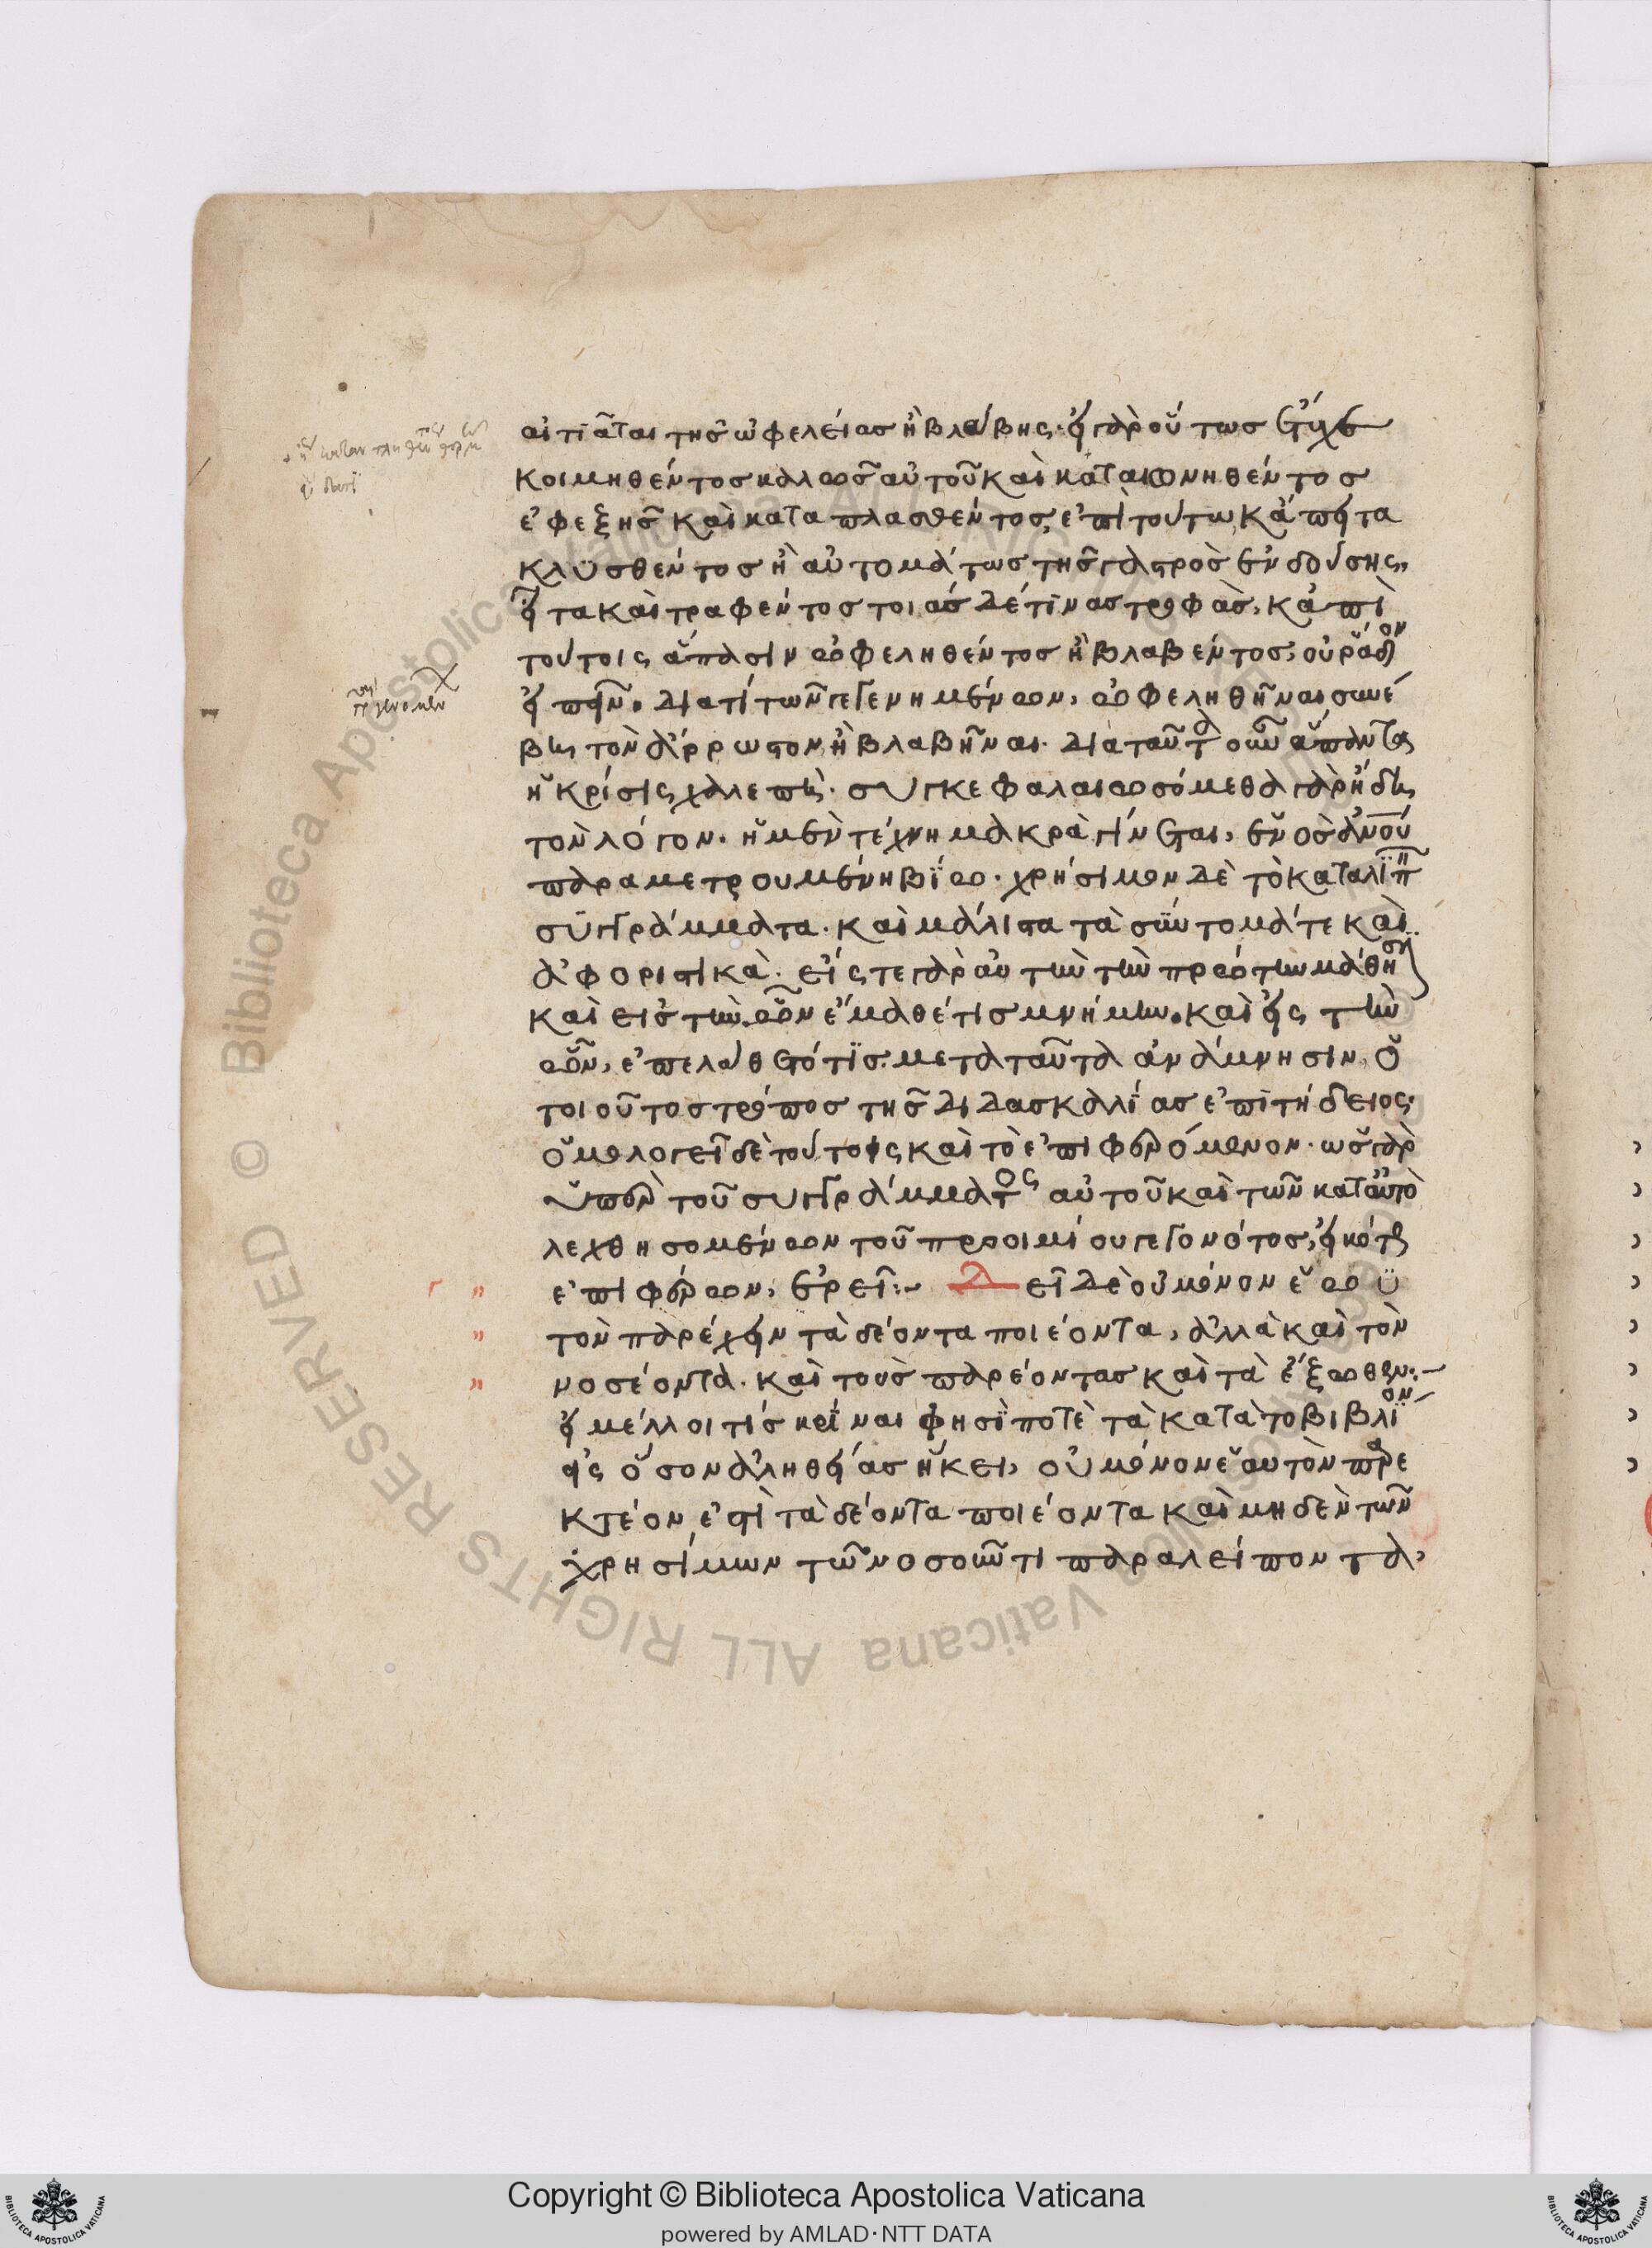 αἰτιᾶται τῆς ὠφελείας ἢ βλάβης· εἰ γὰρ οὕτως ἔτυχε
κοιμηθέντος καλῶς αὐτοῦ καὶ καταιονηθέντος
ἐφεξῆς καὶ καταπλασθέντος, ἐπὶ τούτω κἄπειτα
κλυσθέντος ἢ αὐτομάτως τῆς γαστρὸς ἐνδούσης,
εἶτα καὶ τραφέντος τοιάσδέ τινας τροφὰς, κἀπὶ
τούτοις ἅπασιν ὠφεληθέντος ἢ βλαβέντος, οὐ ῥάδιον
εἰπεῖν. διατί τῶν γεγενημένων, ὠφεληθῆναι συνέ
βη τὸν ἄρρωστον ἢ βλαβῆναι. διὰ ταῦτα οὖν ἅπαντας
ἡ κρίσις χαλεπή. συγκεφαλαιωσόμεθα γὰρ ἤδη
τὸν λόγον. ἡ μὲν τέχνη μακρὰ γίνεται, ἑνὸς ἀνου
παραμετρουμένη βίω. χρήσιμον δὲ τὸ καταλιπ
συγγράμματα. καὶ μάλιστα τὰ σύντομά τε καὶ
ἀφοριστικὰ. εἴς τε γὰρ αὐτὴν τὴν πρώτην μάθησιν
καὶ εἰς τὴν ὧν ἔμαθέ τις μνήμην. καὶ εἰς τὴν
ὧν, ἐπελάθετό τις. μετὰ ταῦτα ἀνάμνησιν, ὁ
τοιοῦτος τρόπος τῆς διδασκαλίας ἐπιτήδειος.
ὁμολογεῖ δὲ τούτοις καὶ τὸ ἐπιφερόμενον. ὡς γὰρ
ὑπὲρ τοῦ συγγράμματος αὐτοῦ καὶ τῶν κατ αὐτὸ
λεχθησομένων τοῦ προοιμίου γεγονότος, εἰκότως
ἐπιφέρων, ἐρεῖ:- Δεῖ δὲ οὐ μόνον ἑωυ
τὸν παρέχειν τὰ δέοντα ποιέοντα, ἀλλὰ καὶ τὸν
νοσέοντα. καὶ τοὺς παρέοντας καὶ τὰ ἔξωθεν:-
εἰ μέλλοι τίς κρῖναι φησί ποτὲ τὰ κατὰ τὸ βιβλίον
εἰς ὅσον ἀληθείας ἥκει, οὐ μόνον ἑαυτὸν παρε
κτέον, ἐστὶ τὰ δέοντα ποιέοντα καὶ μηδὲν τῶν
χρησίμων τῶ νοσοῦντι παραλείποντα,
Copyright © Biblioteca Apostolica Vaticana
powered by AMLAD·NTT DATA